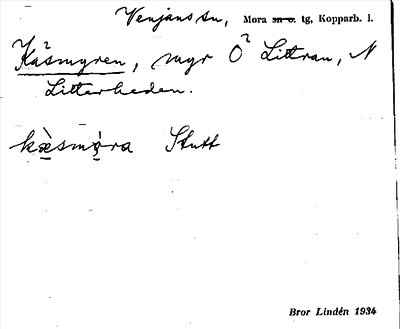 Venjans sn, Mora sn o. tg, Kopparb. l.
Kåsmyren, myr O Littran, N
Litterheden.
kæ̀smỳra Stutt
Bror Lindén 1934